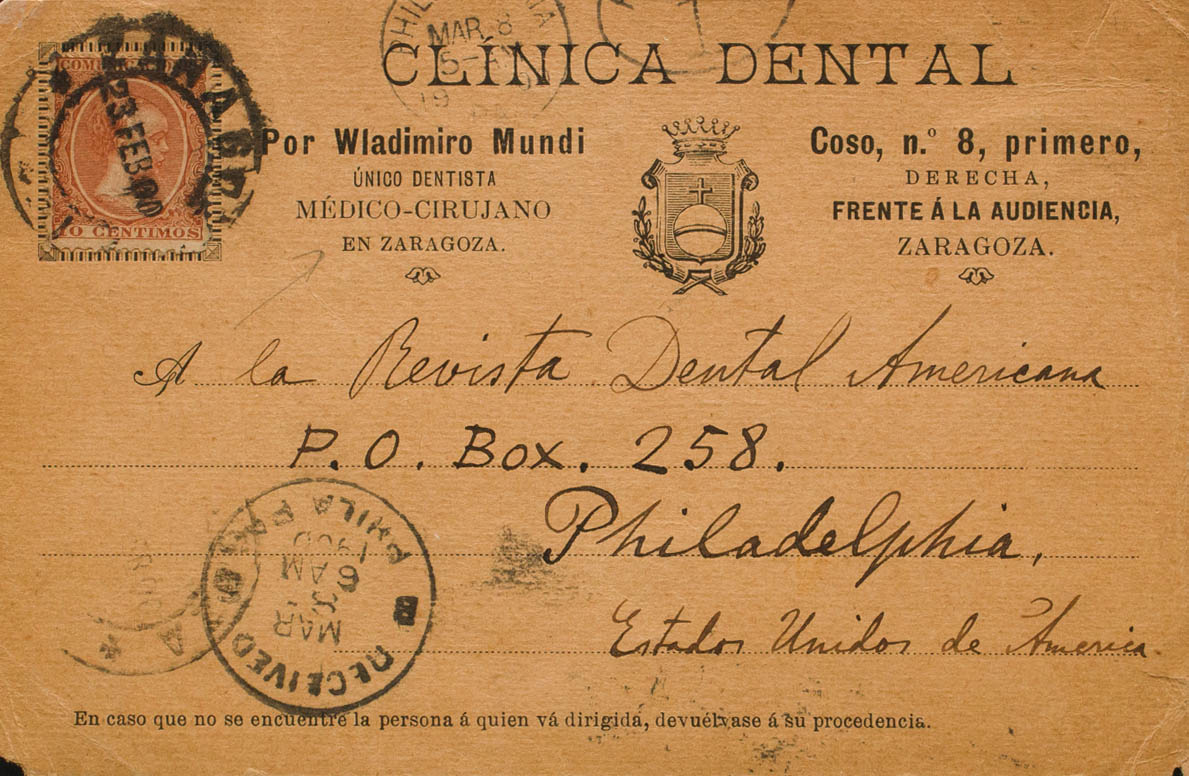 MAR 8
CLÍNICA DENTAL
COMUNICACIONES
23 FEB 00
10 CENTIMOS
Por Wladimiro Mundi
ÚNICO DENTISTA
MÉDICO-CIRUJANO
EN ZARAGOZA.
Coso, n.º 8, primero,
DERECHA,
FRENTE Á LA AUDIENCIA,
ZARAGOZA.
A la Revista Dental Americana
P. O. Box. 258.
Philadelphia,
Estados Unidos de America
RECEIVED
B
MAR
6 AM
1900
PHILA PA
En caso que no se encuentre la persona á quien vá dirigida, devuélvase á su procedencia.